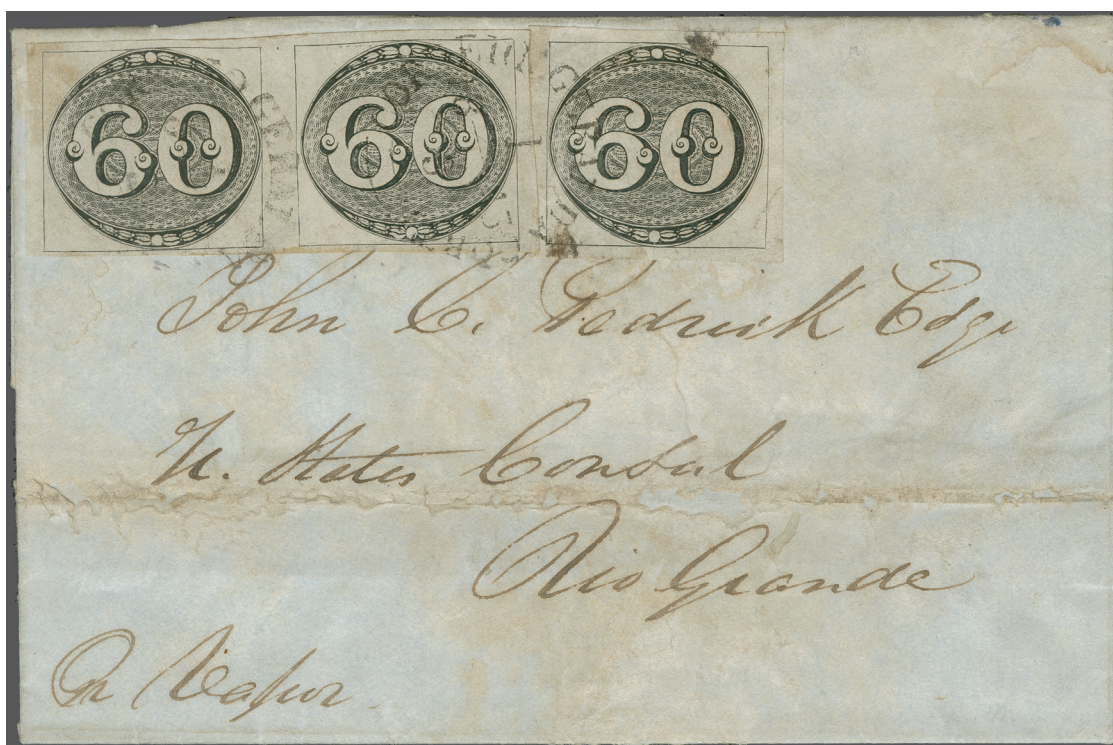 60 60 60
John C. Pedrick Esqr
U. States Consul
Rio Grande
Pr Vapor